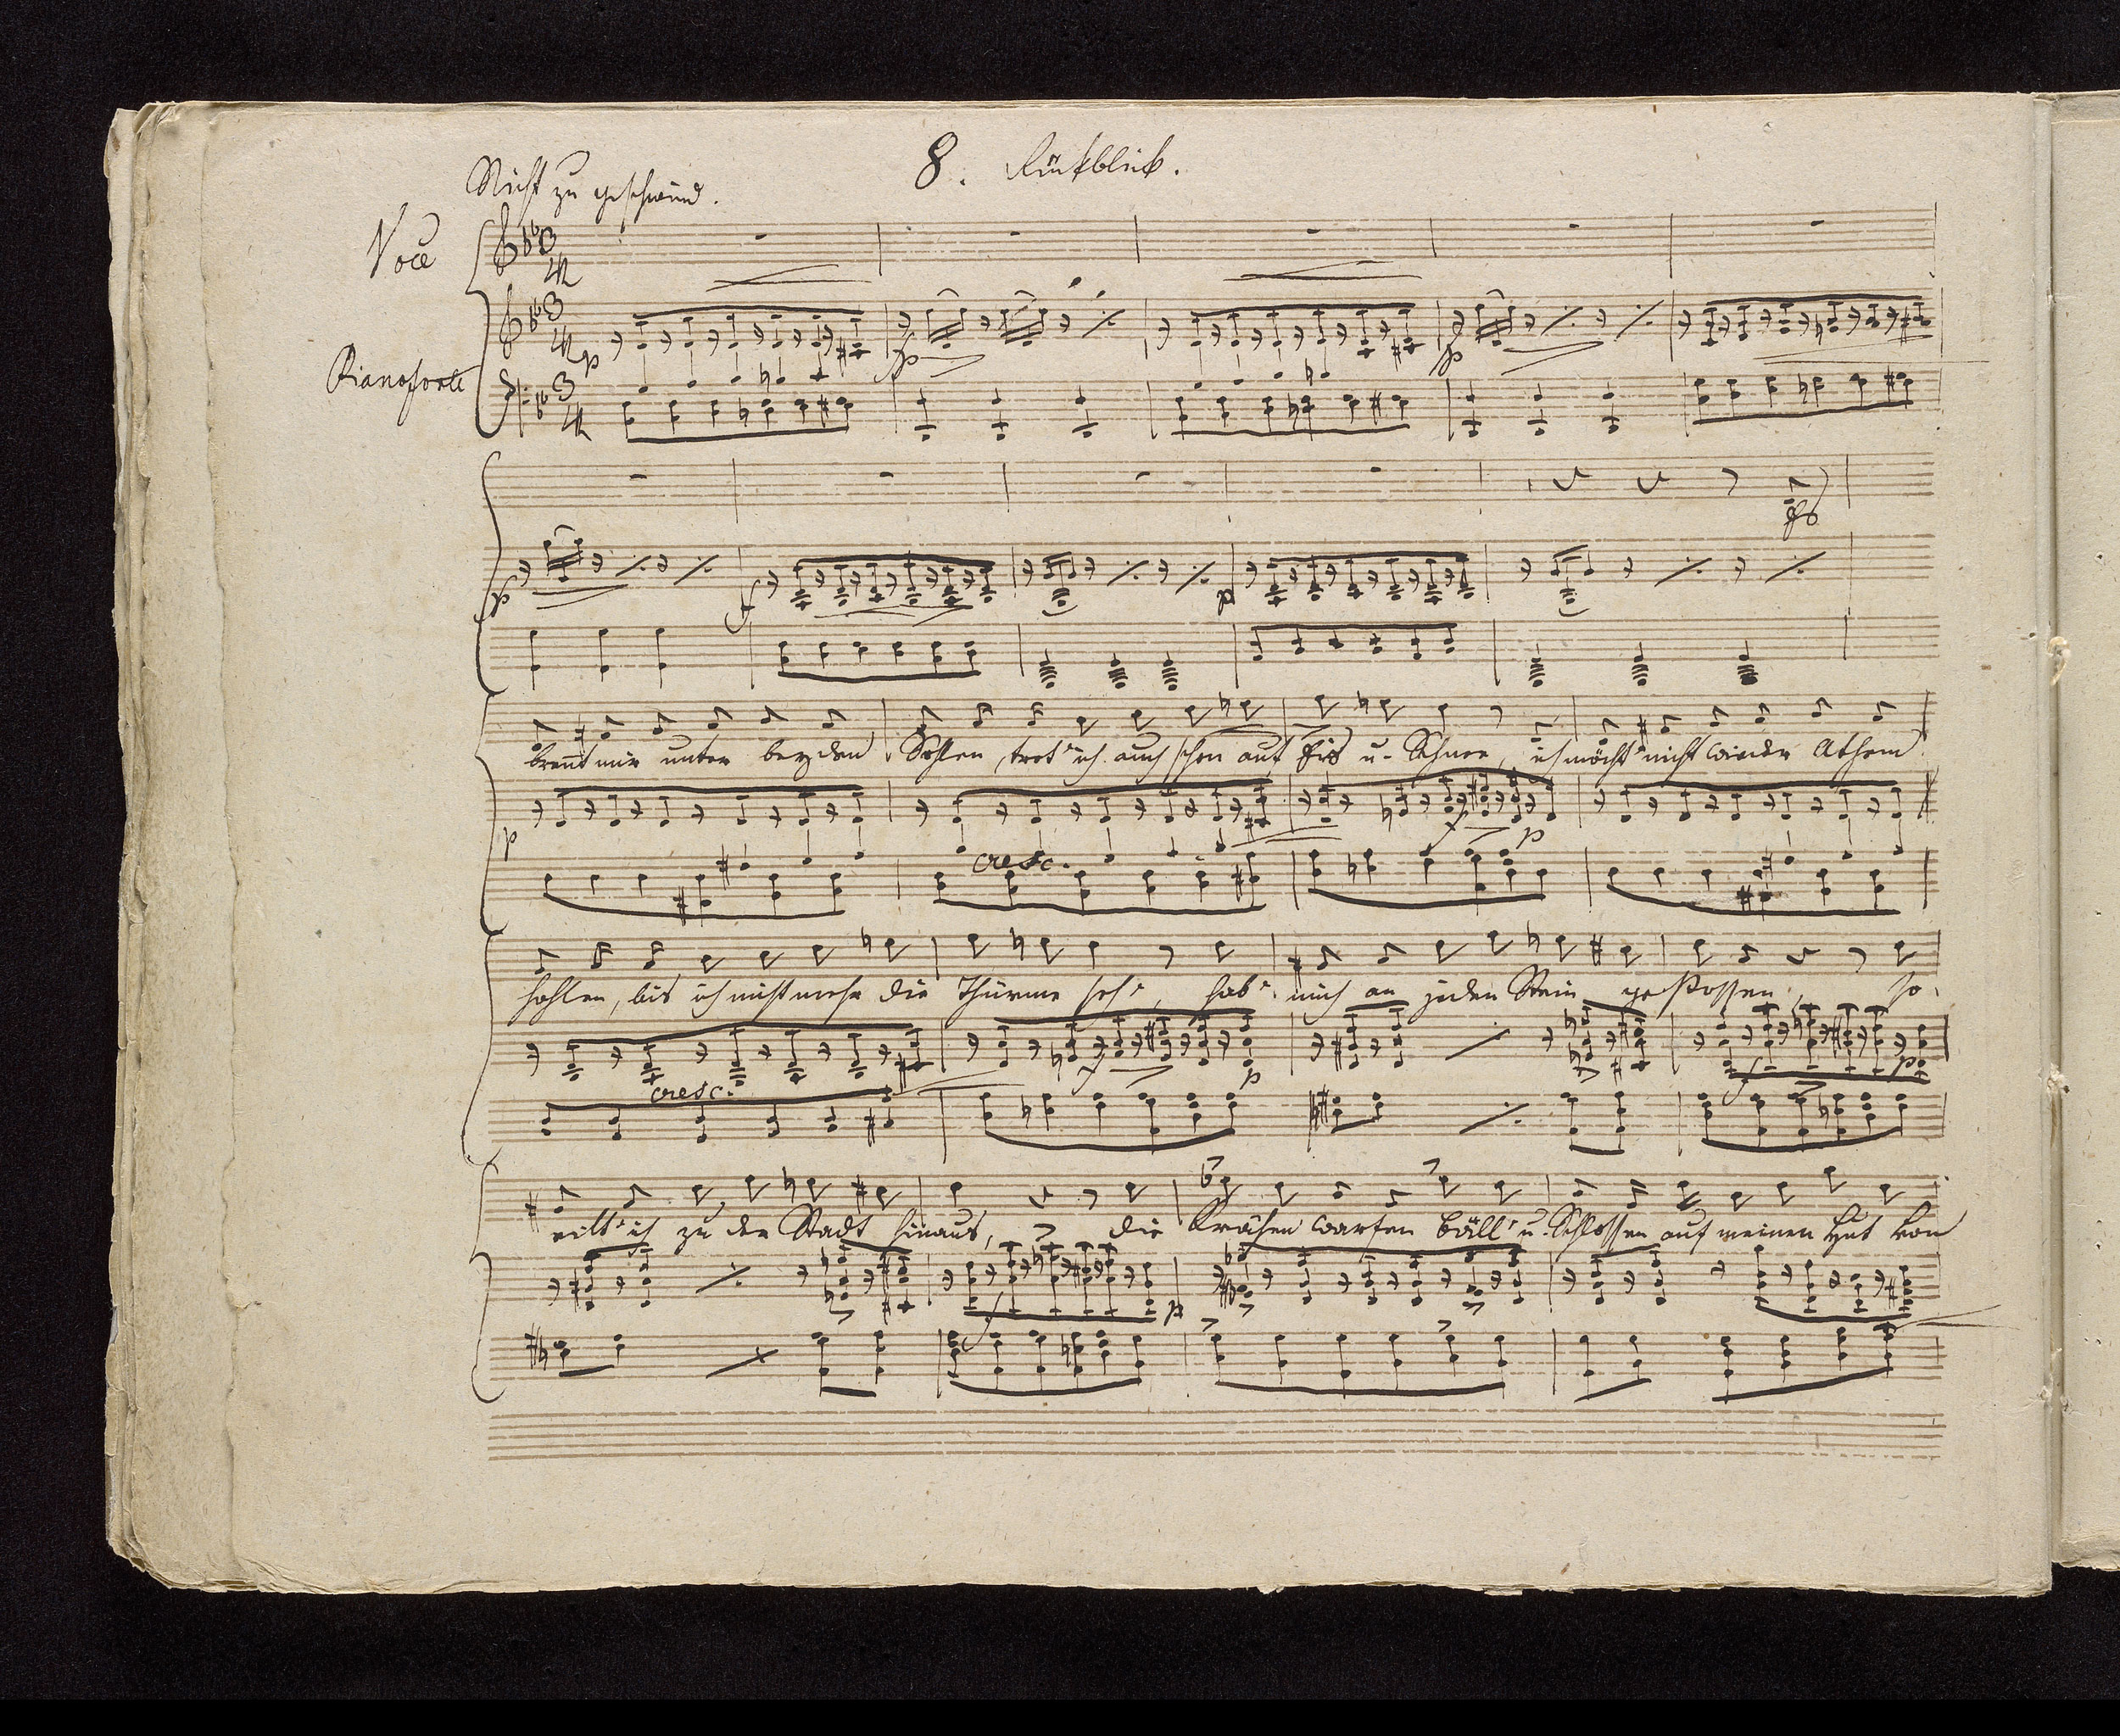 8. Rückblick.
Nicht zu geschwind.
Voce
Pianoforte
p
fp
fp
Es
p
f
p
brennt mir unter beyden Sohlen, tret' ich auch schon auf Eis u. Schnee, ich möcht' nicht wieder Athem
p
cresc.
f
p
hohlen, bis ich nicht mehr die Thürme seh', hab' mich an jeden Stein gestossen, so
cresc.
f
p
f
p
eilt' ich zu der Stadt hinaus, die Krähen warfen Bäll' u. Schlossen auf meinen Hut von
f
p